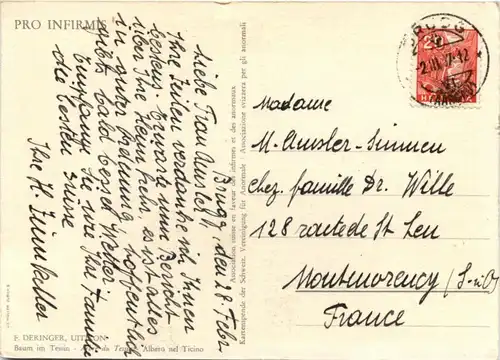 PRO INFIRMIS
Brugg, den 28. Febr.
Liebe Frau Amsler,
Ihre Zeilen verdanke ich Ihnen
bestens. Erwarte nun Bericht
über Ihre Heimkehr, es ist alles
in guter Ordnung. Hoffentlich
gibt bald besser Wetter.
Empfangen Sie u. Ihre Familie
die besten Grüsse
Ihre H.
Association suisse en faveur des infirmes et des anormaux
Kartenspende der Schweiz. Vereinigung für Anormale · Associazione svizzera per gli anormali
E. DERINGER, UITIKON
Baum im Tessin - Albero nel Ticino
BRUGG
2.III. 7-12
HELVETIA
Madame
M. Amsler-Simmen
chez famille Dr. Wille
128 route de St Leu
Montmorency (S.-i-O)
France